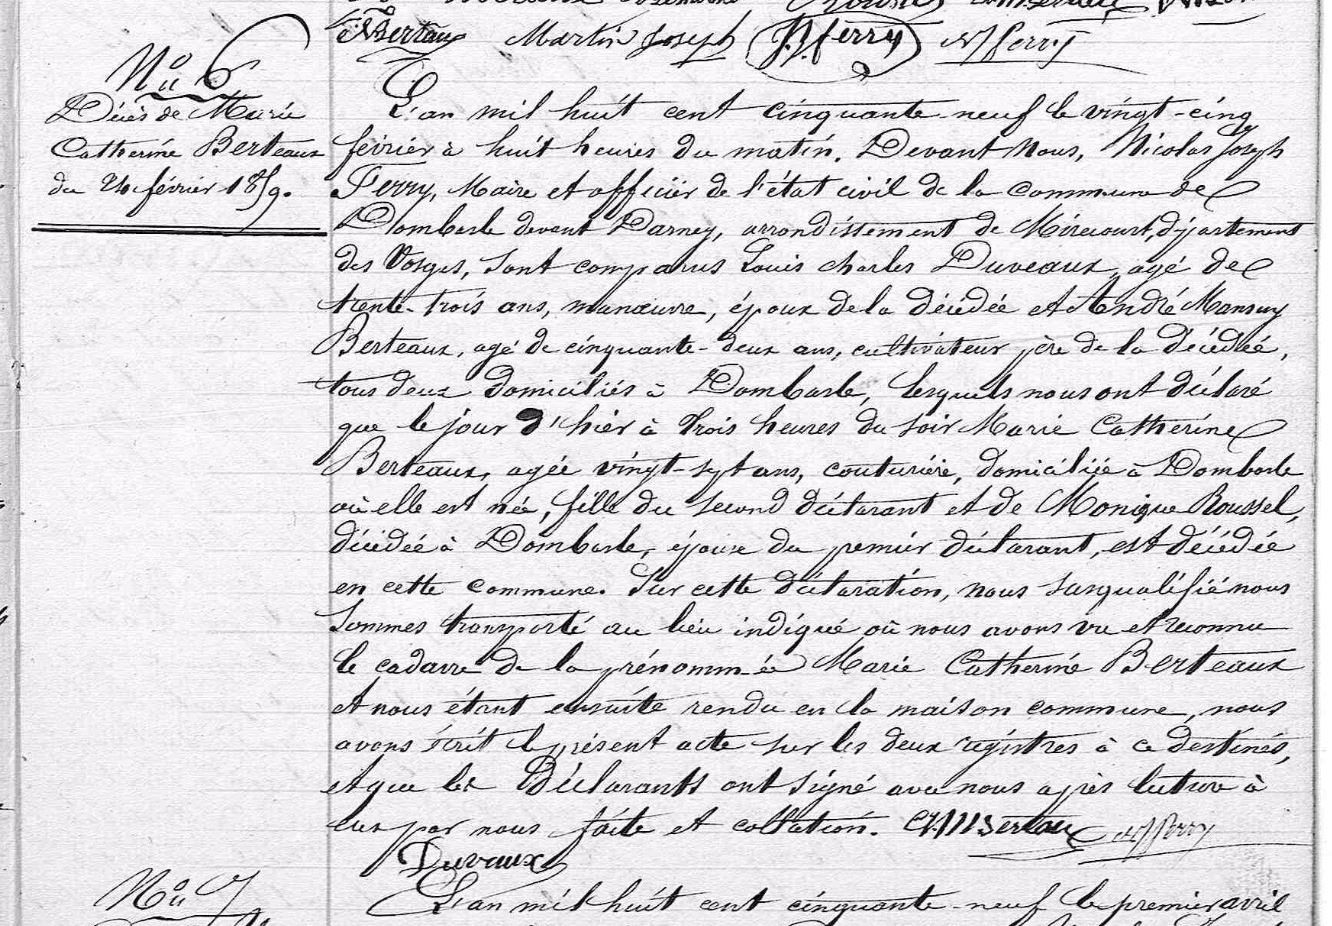 Berteaux Martin Joseph JJ ferry NJ ferry
No 6
Décès de Marie
Catherine Berteaux
du 24 février 1859.
L'an mil huit cent cinquante-neuf le vingt-cinq
février à huit heures du matin. Devant Nous, Nicolas Joseph
Ferry, Maire et officier de l'état civil de la commune de
Dombasle devant Darney, arrondissement de Mirecourt, département
des Vosges, sont comparus Louis Charles Duveaux, agé de
trente-trois ans, manœuvre, époux de la décédée et André Mansuy
Berteaux, agé de cinquante-deux ans, cultivateur père de la décédée,
tous deux domiciliés à Dombasle, lesquels nous ont déclaré
que le jour d'hier à trois heures du soir Marie Catherine
Berteaux, agée vingt-sept ans, couturière, domiciliée à Dombasle
où elle est née, fille du second déclarant et de Monique Roussel,
décédée à Dombasle, épouse du premier déclarant, est décédée
en cette commune. Sur cette déclaration, nous susqualifié nous
sommes transporté au lieu indiqué où nous avons vu et reconnu
le cadavre de la prénommée Marie Catherine Berteaux
et nous étant ensuite rendu en la maison commune, nous
avons écrit le présent acte sur les deux registres à ce destinés,
et que les Déclarants ont signé avec nous après lecture à
eux par nous faite et collation. Berteaux NJ ferry
Duvaux
No 7
L'an mil huit cent cinquante-neuf le premier avril